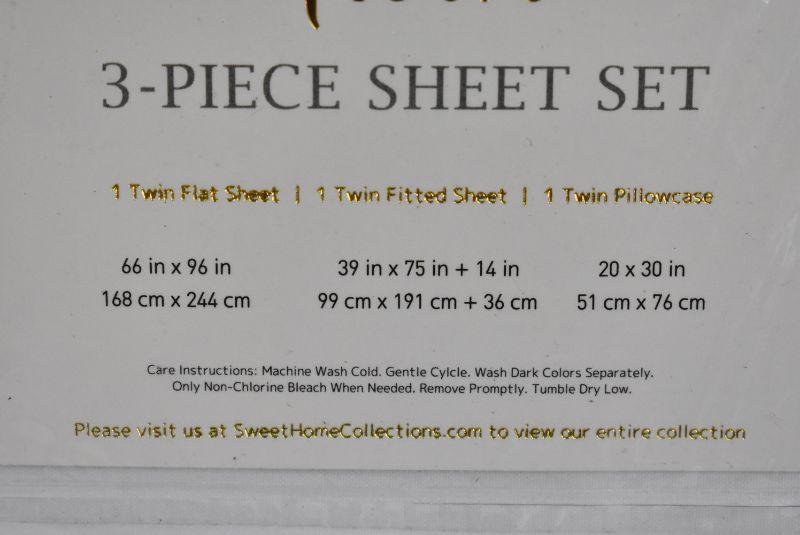 3-PIECE SHEET SET
1 Twin Flat Sheet | 1 Twin Fitted Sheet | 1 Twin Pillowcase
66 in x 96 in 39 in x 75 in + 14 in 20 x 30 in
168 cm x 244 cm 99 cm x 191 cm + 36 cm 51 cm x 76 cm
Care Instructions: Machine Wash Cold. Gentle Cylcle. Wash Dark Colors Separately.
Only Non-Chlorine Bleach When Needed. Remove Promptly. Tumble Dry Low.
Please visit us at SweetHomeCollections.com to view our entire collection